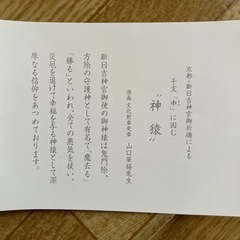 京都・新日吉神宮御祈禱による
干支〝申〟に因む
〝神猿〟
原画 文化勲章受章 山口華楊先生
新日吉神宮御使の御神猿は鬼門除、
方除の守護神として有名で「魔去る」
「勝る」といわれ、全ての悪気を祓い、
災厄を退けて幸福を守る神猿として深
厚なる信仰をあつめております。